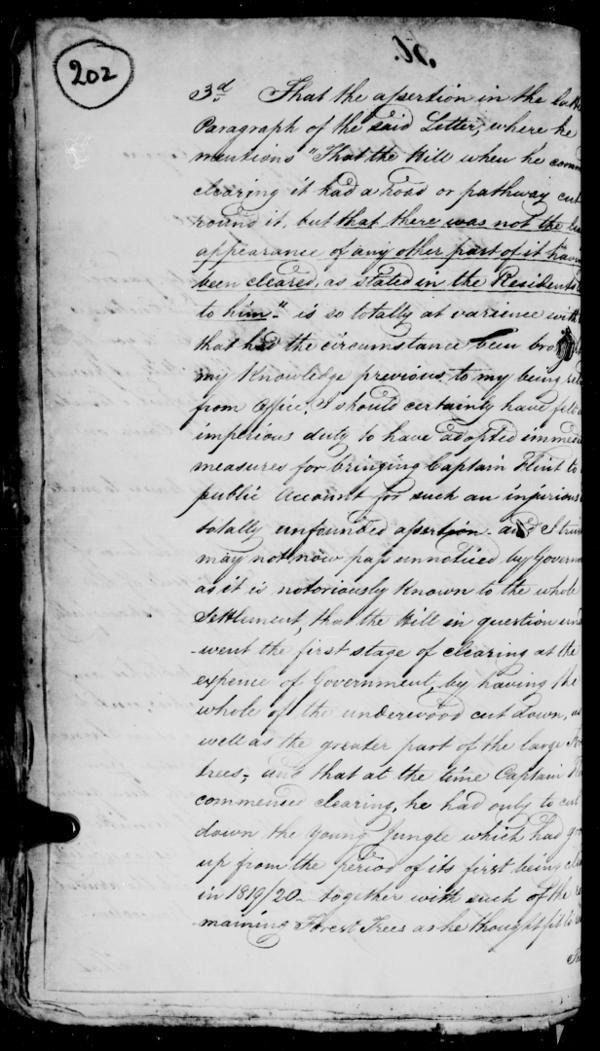 202
3d. That the assertion in the
Paragraph of the said Letter, where he
mentions "That the Hill when he
clearing it had a road or pathway cut
round it, but that there was not the
appearance of any other part of it
been cleared, as stated in the Residents
to him". is so totally at varience with
that had the circumstance been
my Knowledge previous to my being
from Office, I should certainly have felt
imperious duty to have adopted
measures for bringing Captain Flint to
public Account for such an injurious
totally unfounded assertion. and I
may not now pass unnoticed by
as it is notoriously Known to the whole
Settlement, that the Hill in question
-went the first stage of clearing at the
expence of Government, by having the
whole of the underwood cut down, as
well as the greater part of the large
trees; and that at the time Captain
commenced clearing, he had only to cut
down the Young Jungle which had
up from the period of its first being
in 1819/20 - together with such of the
-maining Forest Trees as he thought fit to